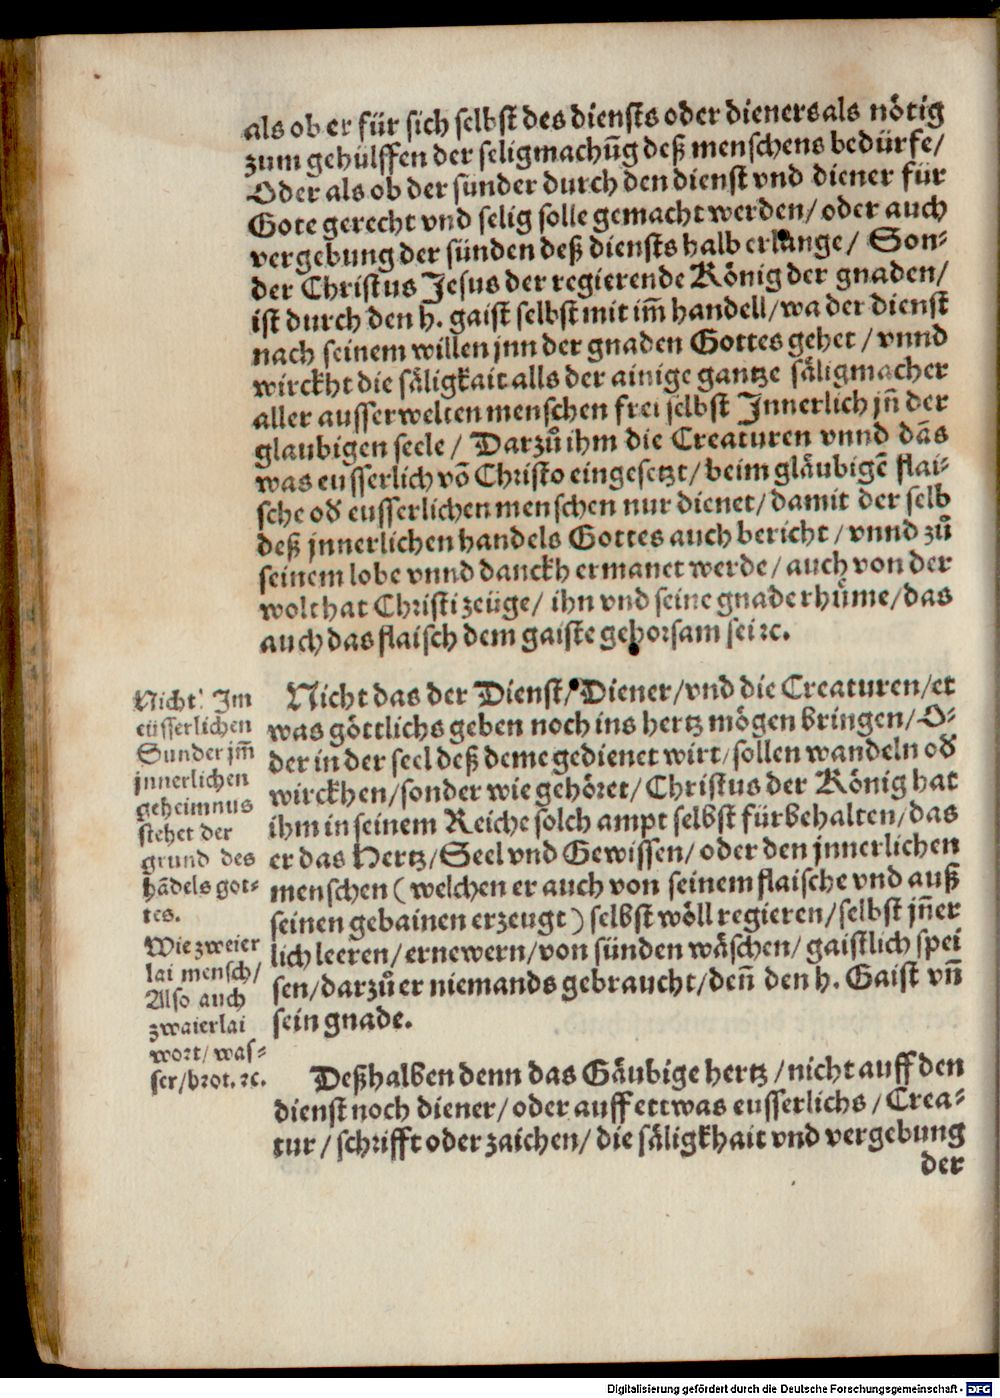 als ob er für sich selbst des diensts oder dieners als nötig
zum gehülffen der seligmachūg deß menschens bedürfe/
Oder als ob der sünder durch den dienst vnd diener für
Gote gerecht vnd selig solle gemacht werden/ oder auch
vergebung der sünden deß diensts halb erlange/ Son⸗
der Christus Jesus der regierende König der gnaden/
ist durch den h. gaist selbst mit im̄ handell/ wa der dienst
nach seinem willen jnn der gnaden Gottes gehet/ vnnd
wirckht die säligkait alls der ainige gantze säligmacher
aller ausserwelten menschen frei selbst Jnnerlich jn̄ der
glaubigen seele/ Darzů ihm die Creaturen vnnd dās
was eusserlich vō Christo eingesetzt/ beim gläubigē flai⸗
sche oď eusserlichen menschen nur dienet/ damit der selb
deß jnnerlichen handels Gottes auch bericht/ vnnd zů
seinem lobe vnnd danckh ermanet werde/ auch von der
wolthat Christi zeüge/ ihn vnd seine gnade rhüme/ das
auch das flaisch dem gaiste gehorsam sei ꝛc.
Nicht das der Dienst/ Diener/ vnd die Creaturen/ et
was göttlichs geben noch ins hertz mögen bringen/ O⸗
der in der seel deß deme gedienet wirt/ sollen wandeln oď
wirckhen/ sonder wie gehöret/ Christus der König hat
ihm in seinem Reiche solch ampt selbst fürbehalten/ das
er das Hertz/ Seel vnd Gewissen/ oder den jnnerlichen
menschen (welchen er auch von seinem flaische vnd auß
seinen gebainen erzeugt) selbst wöll regieren/ selbst jn̄er
lich leeren/ ernewern/ von sünden wäschen/ gaistlich spei
sen/ darzů er niemands gebraucht/ den̄ den h. Gaist vn̄
sein gnade.
Nicht Im
eüsserlichen
Sunder jm̄
jnnerlichen
geheimnus
stehet der
grund des
hādels got⸗
tes.
Wie zweier
lai mensch/
Also auch
zwaierlai
wort/ was⸗
ser/ brot. ꝛc.
Deßhalben denn das Gäubige hertz/ nicht auff den
dienst noch diener/ oder auff ettwas eusserlichs/ Crea⸗
tur/ schrifft oder zaichen/ die säligkhait vnd vergebung
der
Digitalisierung gefördert durch die Deutsche Forschungsgemeinschaft - DFG